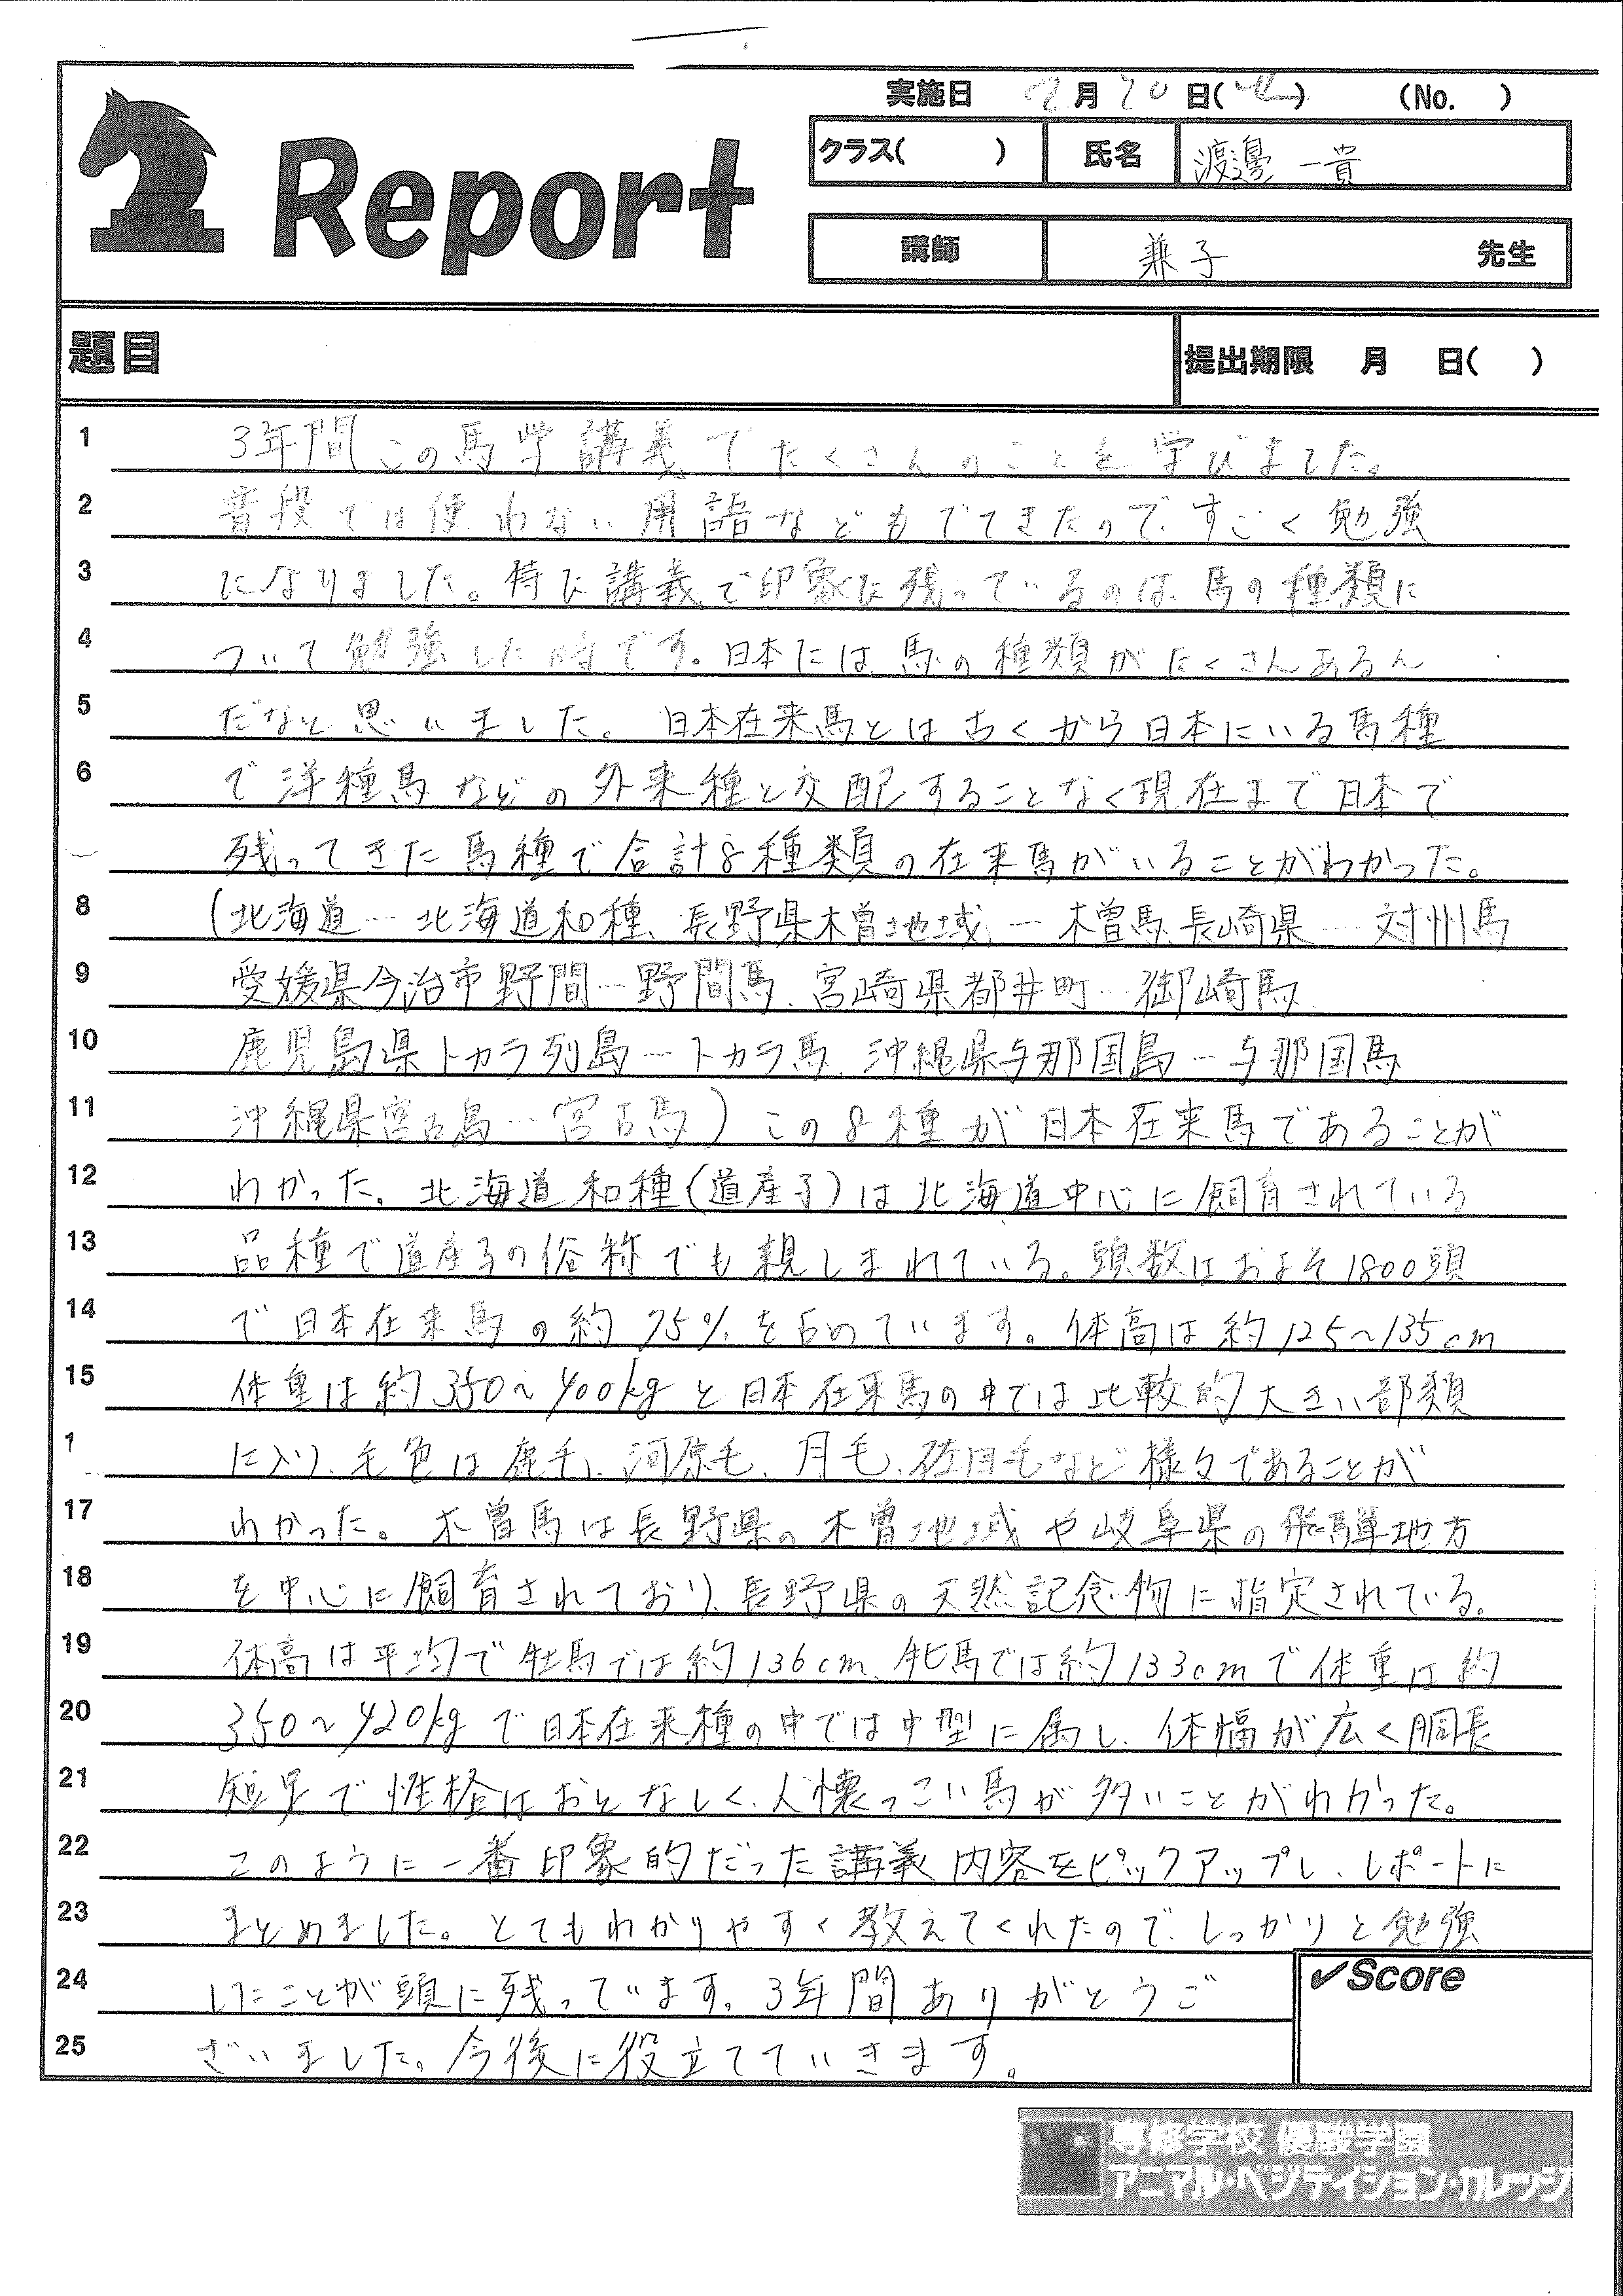 実施日 2月20日( ) (No. )
クラス( ) 氏名 渡邊 一貴
Report
講師 兼子 先生
題目 提出期限 月 日( )
1 3年間この馬学講義でたくさんのことを学びました。
2 普段では使わない用語などもでてきたので、すごく勉強
3 になりました。特に講義で印象に残っているのは、馬の種類に
4 ついて勉強した時です。日本には馬の種類がたくさんあるん
5 だなと思いました。日本在来馬とは古くから日本にいる馬種
6 で洋種馬などの外来種と交配することなく現在まで日本で
残ってきた馬種で合計8種類の在来馬がいることがわかった。
8 (北海道…北海道和種、長野県木曽地域…木曽馬、長崎県…対州馬
9 愛媛県今治市野間…野間馬、宮崎県都井町…御崎馬、
10 鹿児島県トカラ列島…トカラ馬、沖縄県与那国島…与那国馬
11 沖縄県宮古島…宮古馬)この8種が日本在来馬であることが
12 わかった。北海道和種(道産子)は北海道中心に飼育されている
13 品種で道産子の俗称でも親しまれている。頭数はおよそ1800頭
14 で日本在来馬の約75%を占めています。体高は約125~135cm
15 体重は約350~400kgと日本在来馬の中では比較的大きい部類
1 に入り、毛色は鹿毛、河原毛、月毛、佐目毛など様々であることが
17 わかった。木曽馬は長野県の木曽地域や岐阜県の飛騨地方
18 を中心に飼育されており、長野県の天然記念物に指定されている。
19 体高は平均で牡馬では約136cm、牝馬では約133cmで体重は約
20 350~420kgで日本在来種の中では中型に属し、体幅が広く胴長
21 短足で性格はおとなしく、人懐っこい馬が多いことがわかった。
22 このように一番印象的だった講義内容をピックアップし、レポートに
23 まとめました。とてもわかりやすく教えてくれたので、しっかりと勉強
24 したことが頭に残っています。3年間ありがとうご
25 ざいました。今後に役立てていきます。
✓Score
専修学校 優駿学園
アニマル・ベジテイション・カレッジ